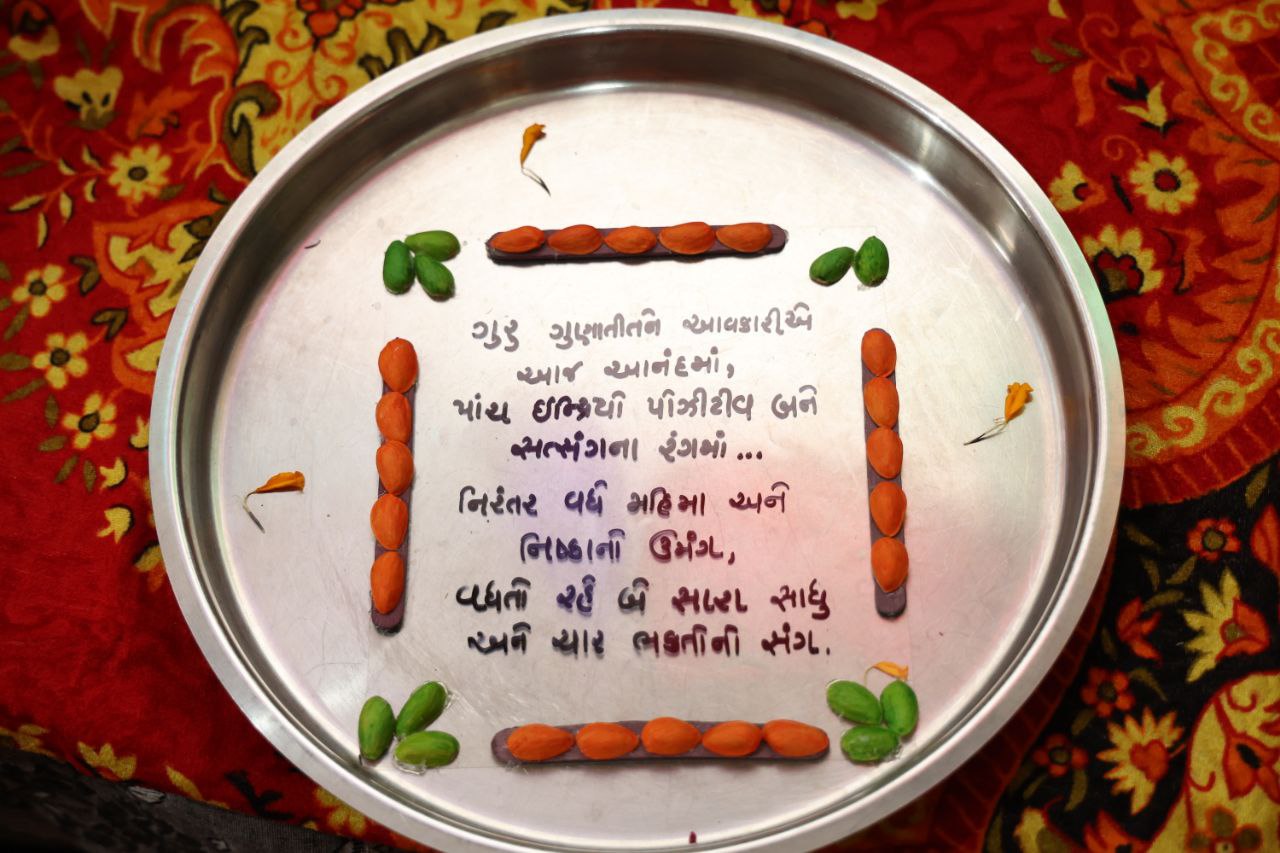 ગુરુ ગુણાતીતને આવકારીએ
આજ આનંદમાં,
પાંચ ઈન્દ્રિયો પોઝીટીવ બને
સત્સંગના રંગમાં...
નિરંતર વધે મહિમા અને
નિષ્ઠાનો ઉમંગ,
વધતો રહે બે સારા સાધુ
અને ચાર ભક્તોનો સંગ.